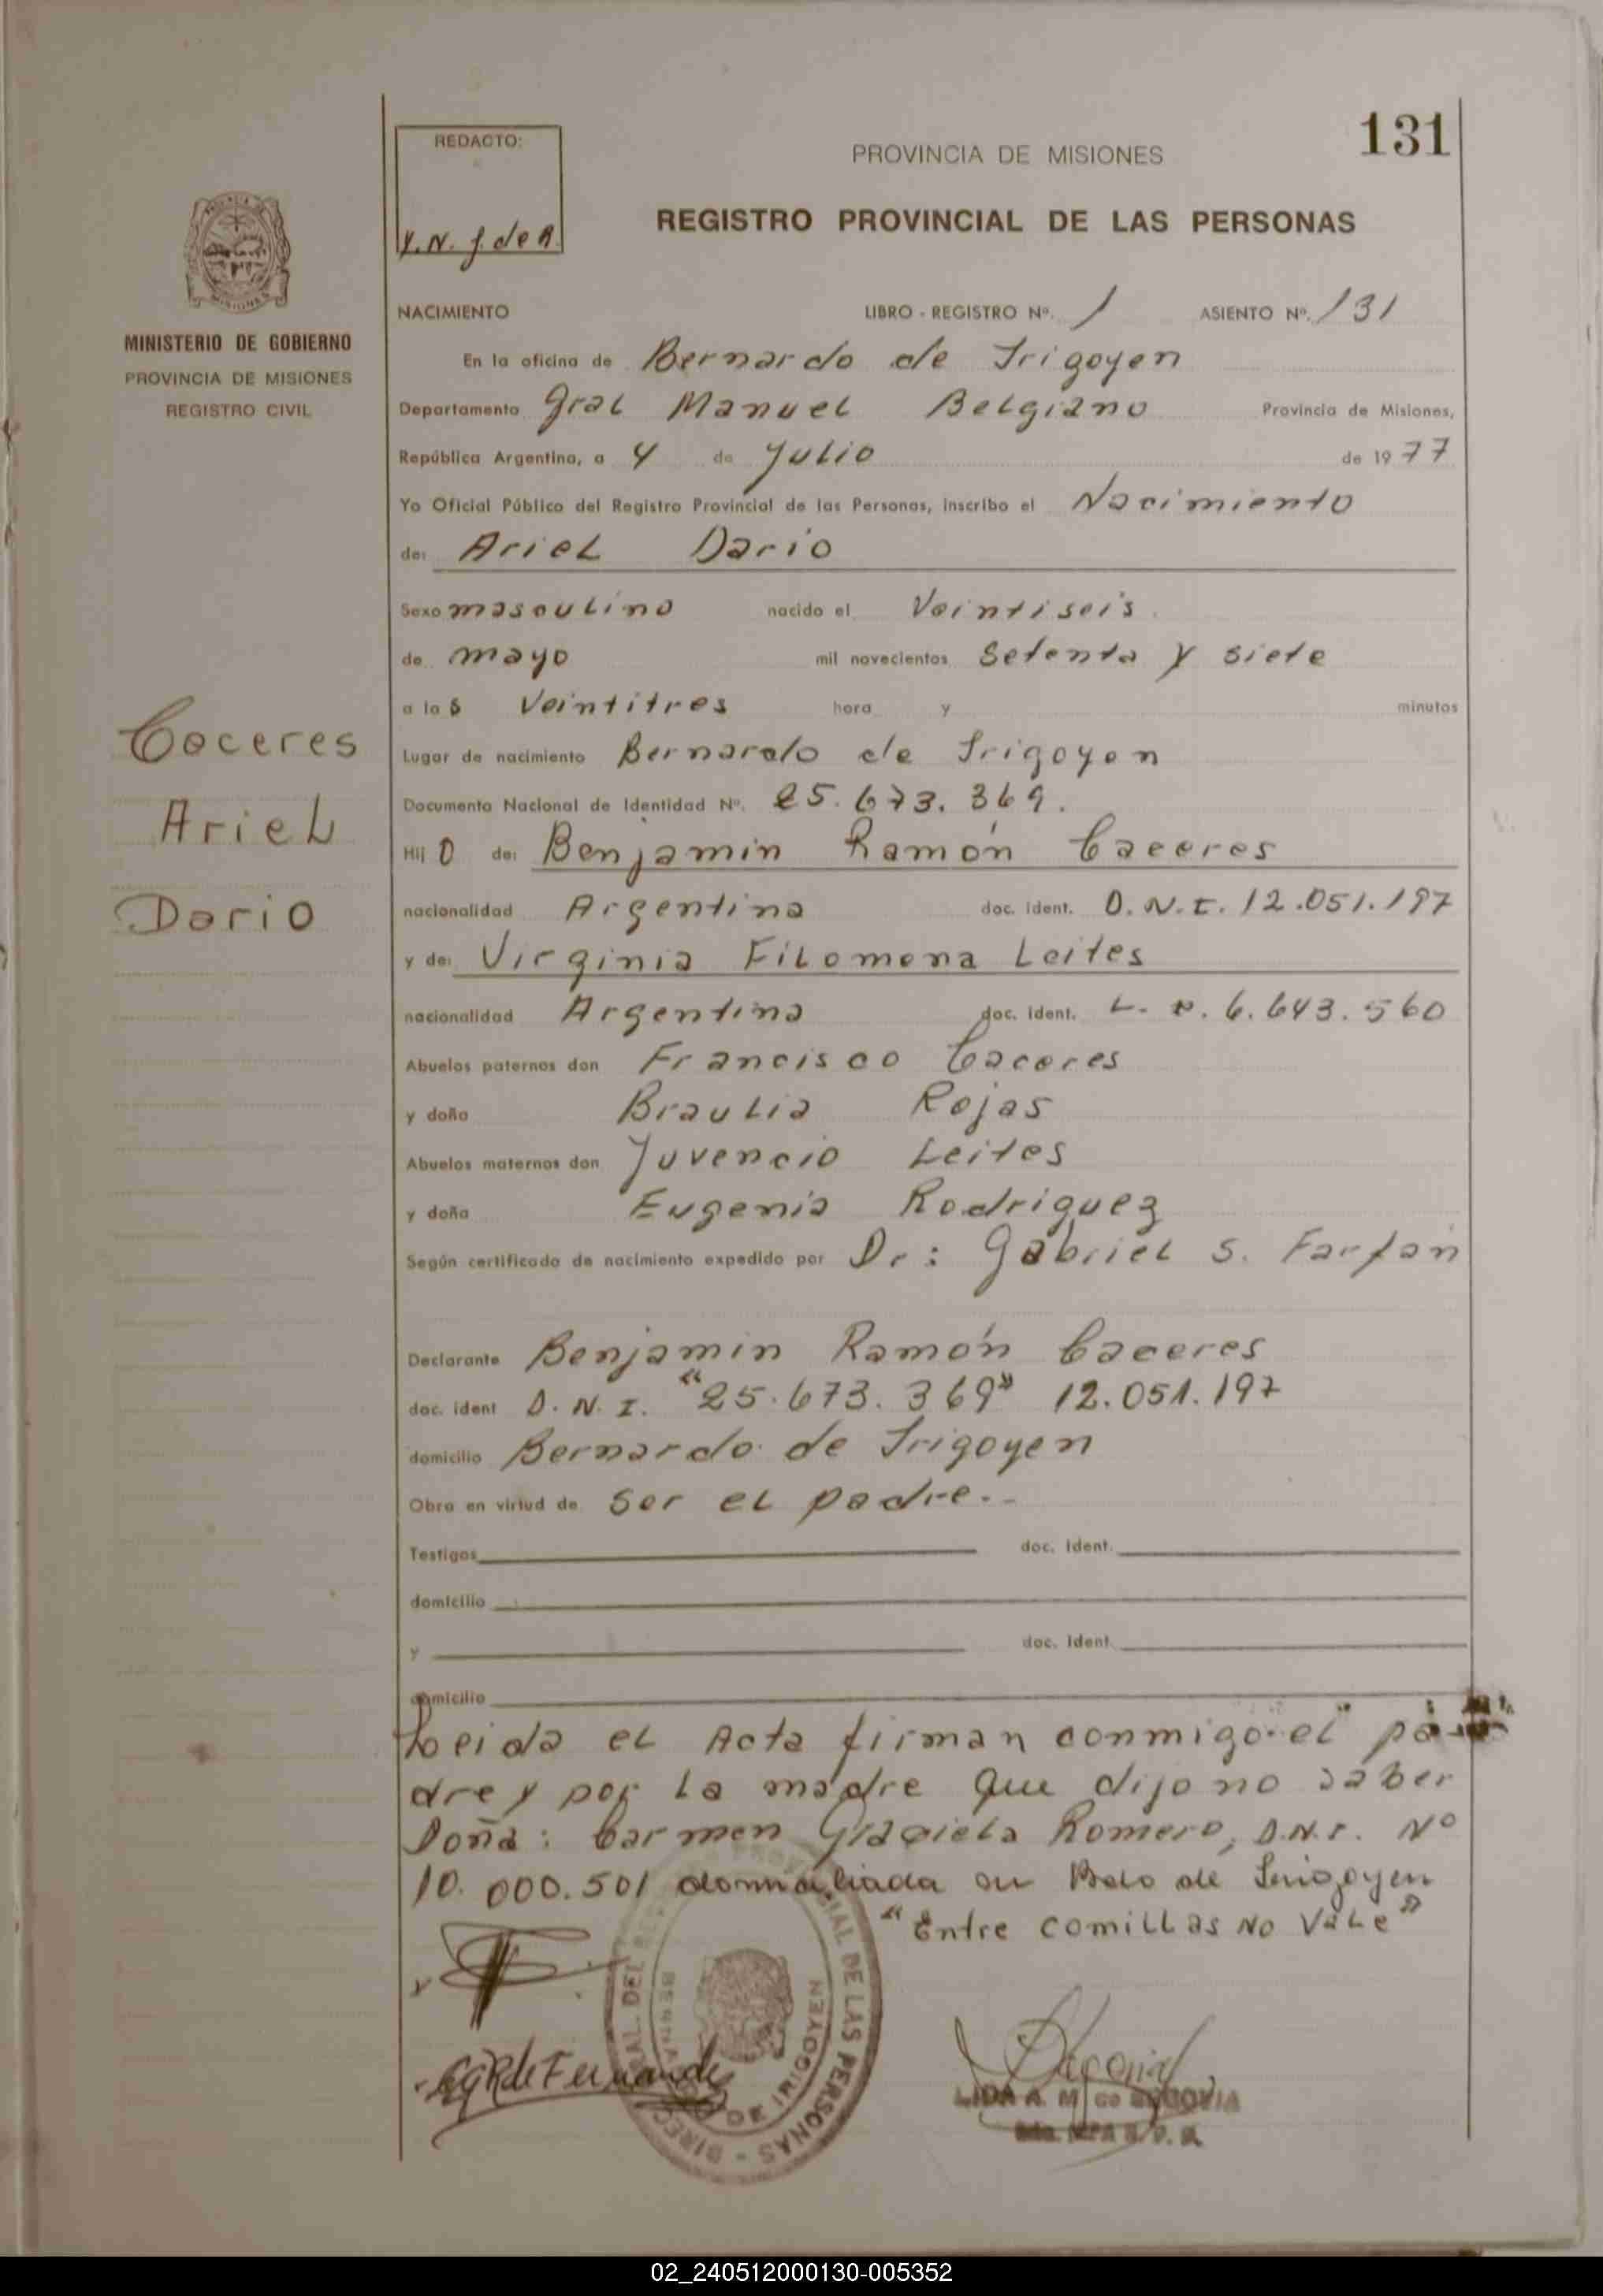 131
REDACTO:
Y.N. J. de A.
PROVINCIA DE MISIONES
REGISTRO PROVINCIAL DE LAS PERSONAS
MINISTERIO DE GOBIERNO
PROVINCIA DE MISIONES
REGISTRO CIVIL
NACIMIENTO LIBRO - REGISTRO Nº. 1 ASIENTO Nº. 131
En la oficina de Bernardo de Irigoyen
Departamento Gral Manuel Belgrano Provincia de Misiones,
República Argentina, a 4 de Julio de 1977
Yo Oficial Público del Registro Provincial de las Personas, inscribo el Nacimiento
de: Ariel Dario
Sexo masculino nacido el Veintiseis
de mayo mil novecientos Setenta y siete
a las Veintitres hora y minutos
Caceres
Ariel
Dario
Lugar de nacimiento Bernardo de Irigoyen
Documento Nacional de Identidad Nº. 25.673.369.
Hijo de: Benjamin Ramón Caceres
nacionalidad Argentina doc. ident. D.N.I. 12.051.197
y de: Virginia Filomena Leites
nacionalidad Argentina doc. ident. L. 6.643.560
Abuelos paternos don Francisco Caceres
y doña Braulia Rojas
Abuelos maternos don Juvencio Leites
y doña Eugenia Rodriguez
Según certificado de nacimiento expedido por Dr: Gabriel S. Farfan
Declarante Benjamin Ramón Caceres
doc. ident D.N.I. "25.673.369" 12.051.197
domicilio Bernardo de Irigoyen
Obra en virtud de ser el padre.-
Testigos doc. ident.
domicilio
y doc. ident.
domicilio
Leida el Acta firman conmigo el pa-
dre y por la madre que dijo no saber
Doña: Carmen Graciela Romero, D.N.I. Nº
10.000.501 domiciliada en Bdo de Irigoyen
"Entre comillas No Vale"
DE LAS PERSONAS
DE IRIGOYEN
LIDA A. M de SEGOVIA
02_240512000130-005352